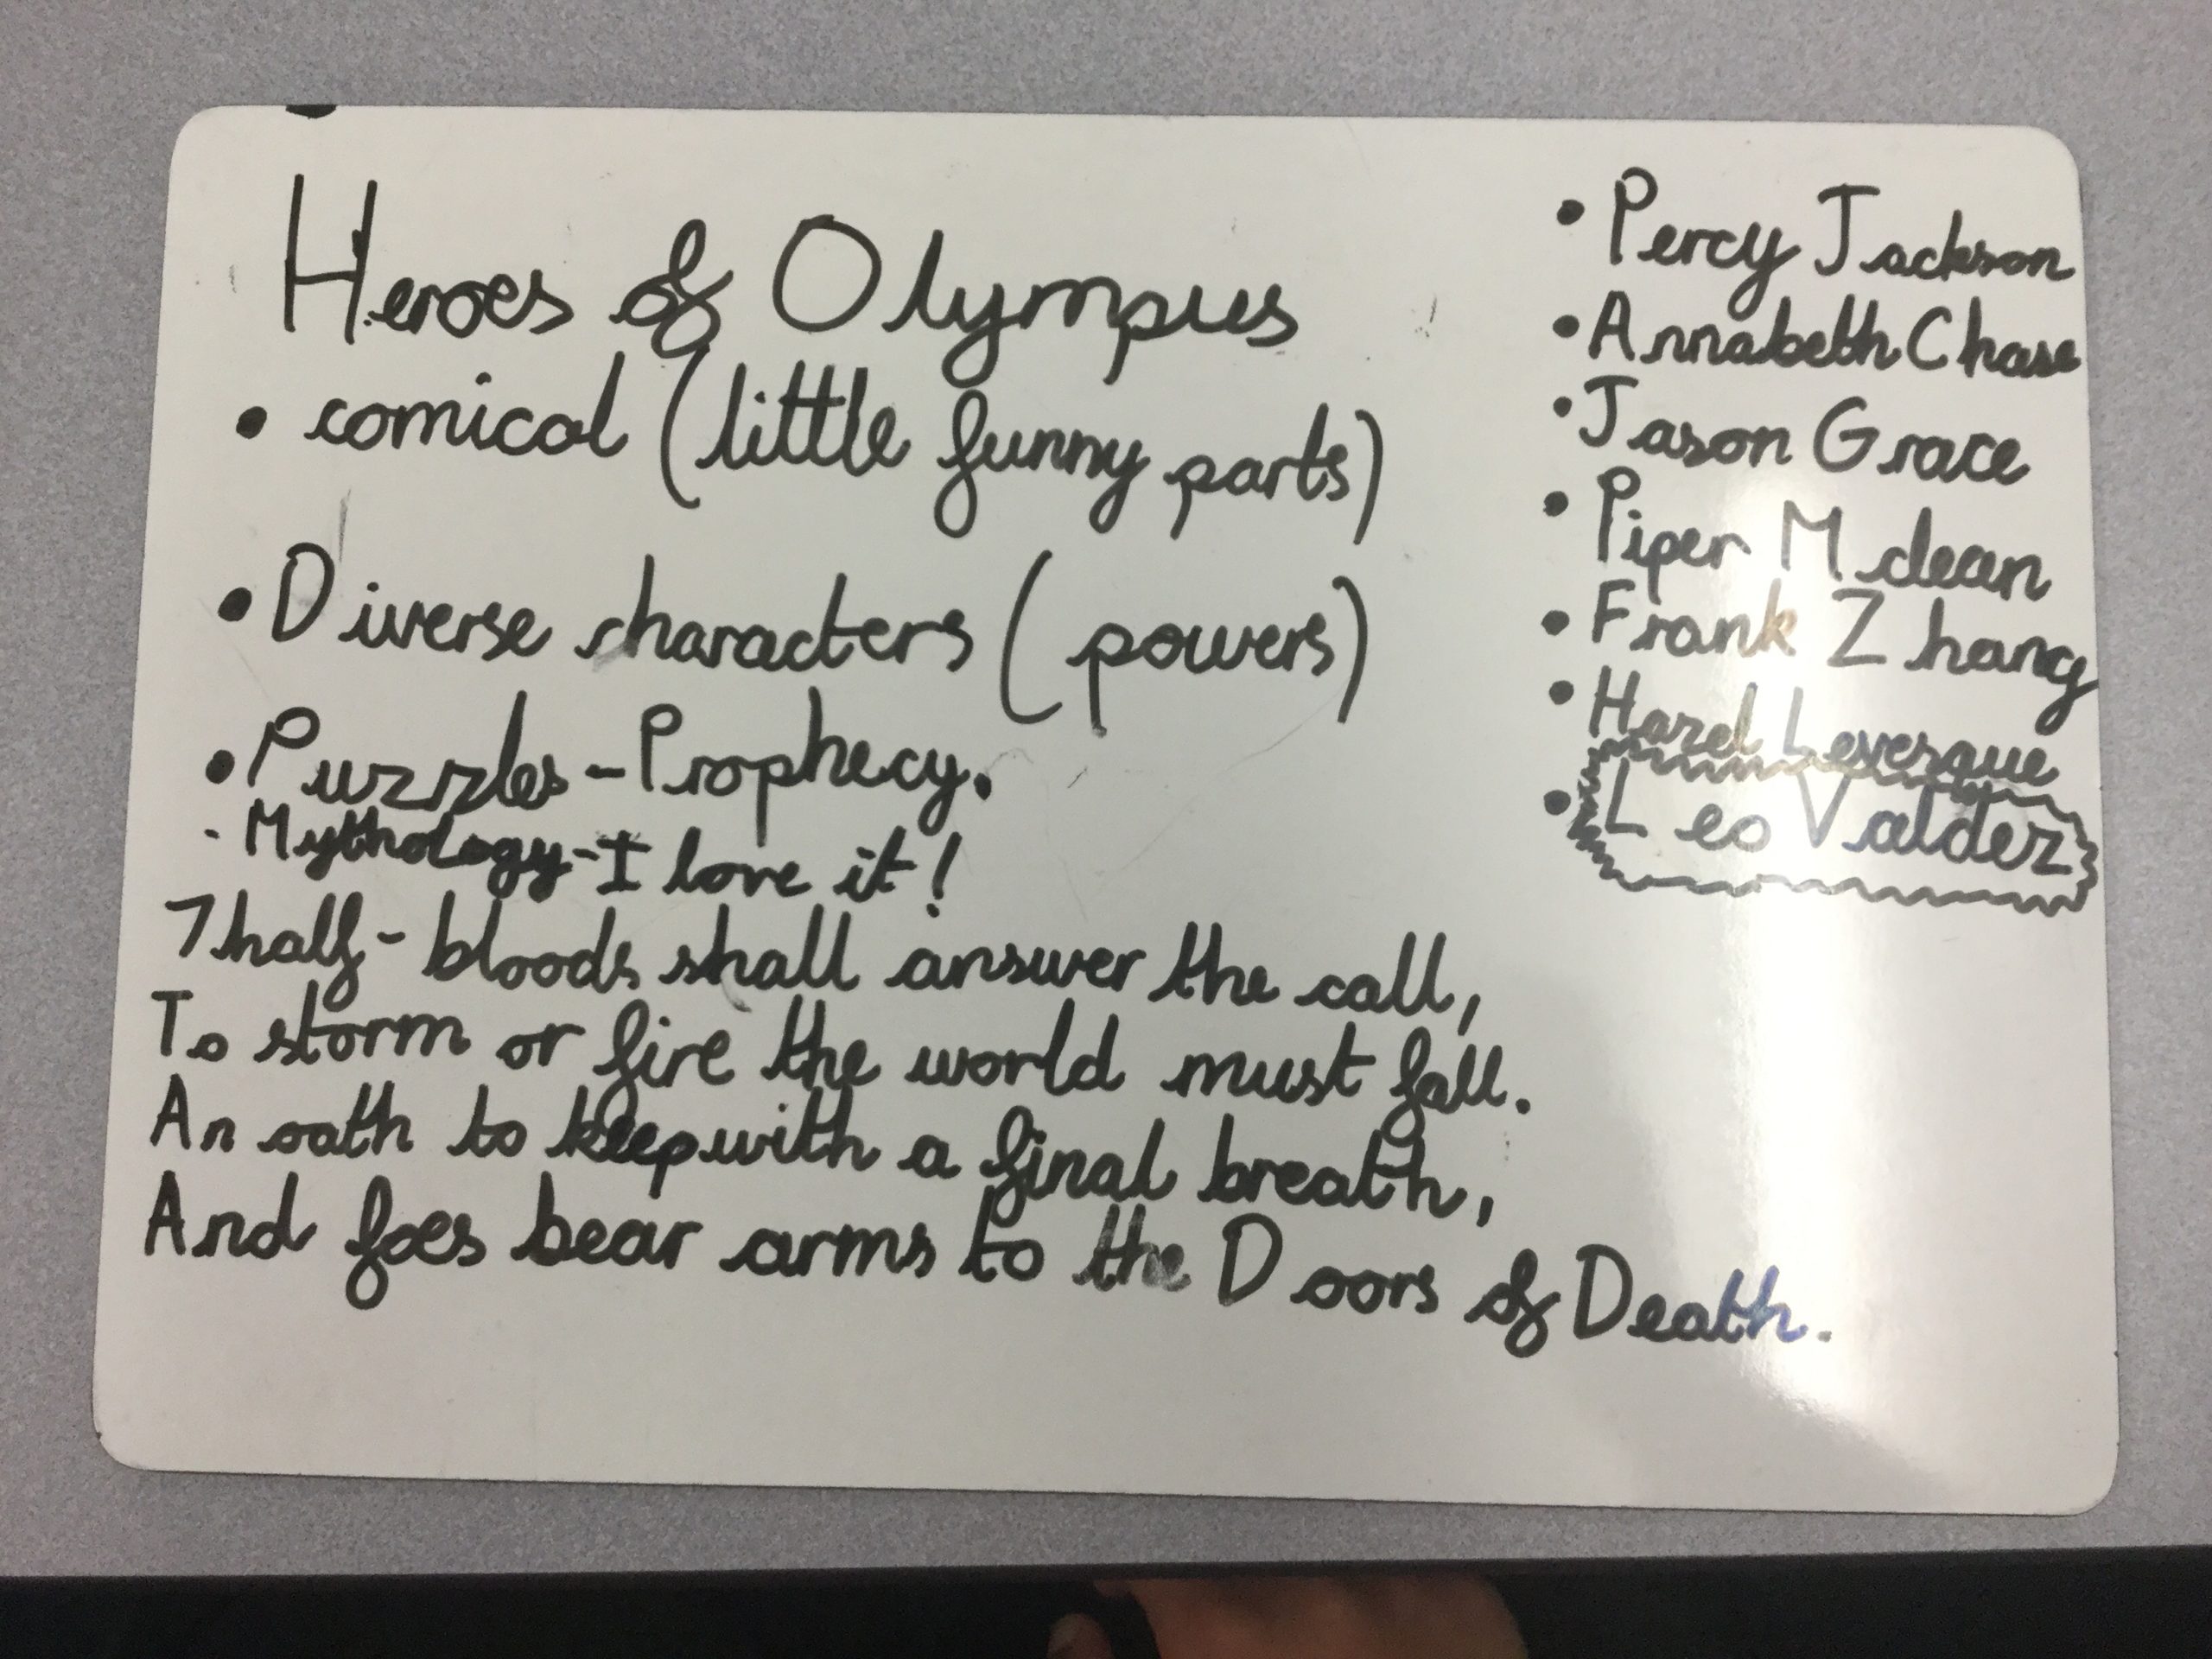 Heroes of Olympus
• comical (little funny parts)
• Diverse characters (powers)
• Puzzles - Prophecy.
- Mythology - I love it!
7 half-bloods shall answer the call,
To storm or fire the world must fall.
An oath to keep with a final breath,
And foes bear arms to the Doors of Death.
• Percy Jackson
• Annabeth Chase
• Jason Grace
• Piper Mclean
• Frank Zhang
• Hazel Levesque
• Leo Valdez